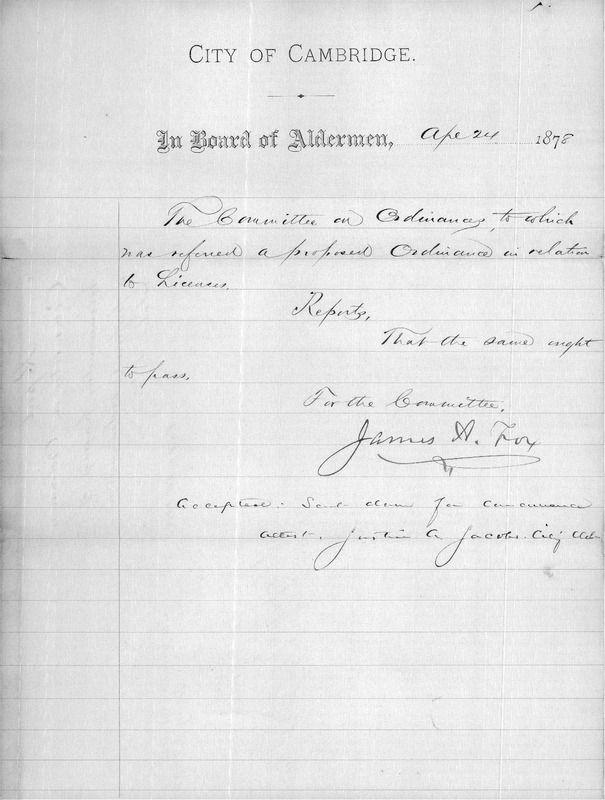 CITY OF CAMBRIDGE.
In Board of Aldermen, Ape 24 1878
The Committee on Ordinances, to which
was referred a proposed Ordinance in relation
to Licenses,
Reports,
That the same ought
to pass.
For the Committee,
James A. Fox
Accepted. Sent down for concurrence
Attest. Justin A. Jacobs. City Clk